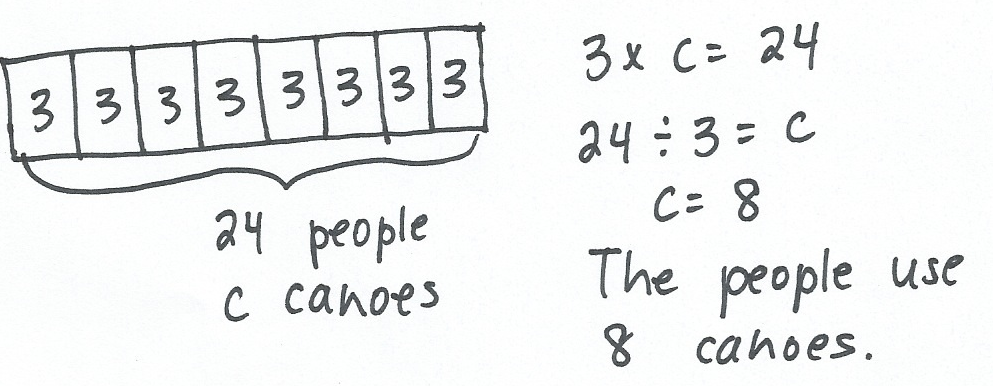 3 3 3 3 3 3 3 3
24 people
c canoes
3 x c = 24
24 ÷ 3 = c
c = 8
The people use
8 canoes.